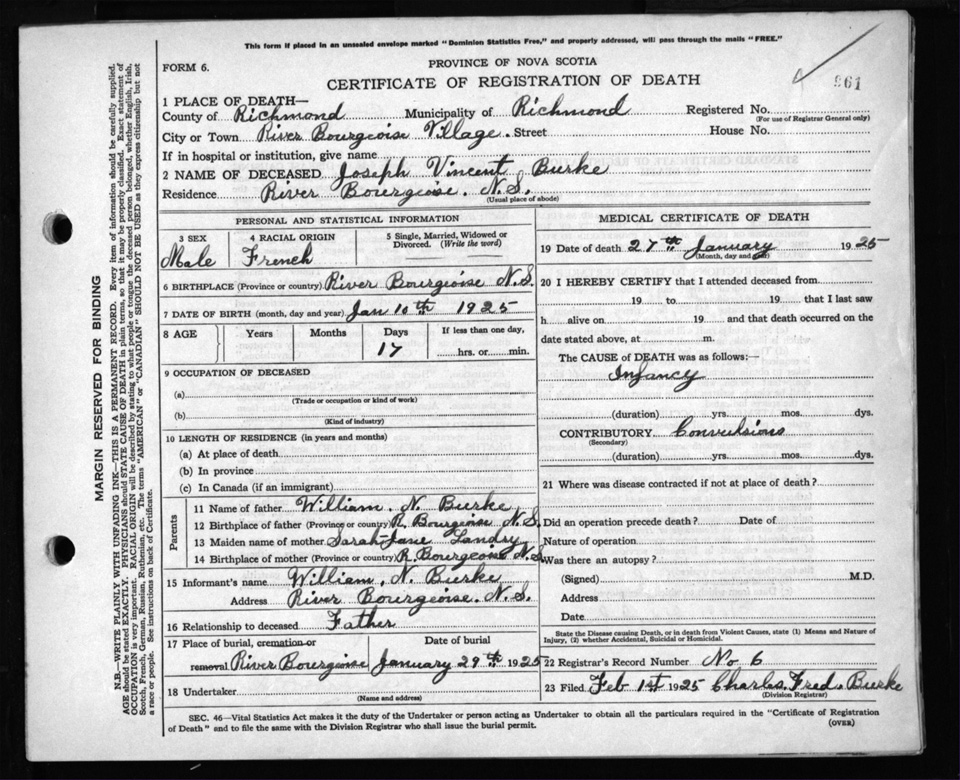 This form if placed in an unsealed envelope marked "Dominion Statistics Free," and properly addressed, will pass through the mails "FREE."
FORM 6.
PROVINCE OF NOVA SCOTIA
CERTIFICATE OF REGISTRATION OF DEATH
961
1 PLACE OF DEATH—
County of Richmond Municipality of Richmond Registered No.
(For use of Registrar General only)
City or Town River Bourgeoise Village. Street House No.
If in hospital or institution, give name
2 NAME OF DECEASED Joseph Vincent Burke
Residence River Bourgeoise. N.S.
(Usual place of abode)
PERSONAL AND STATISTICAL INFORMATION
3 SEX 4 RACIAL ORIGIN 5 Single, Married, Widowed or Divorced. (Write the word)
Male French
6 BIRTHPLACE (Province or country) River Bourgeoise N.S.
7 DATE OF BIRTH (month, day and year) Jan 10th 1925
8 AGE Years Months Days If less than one day,
17 hrs. or min.
9 OCCUPATION OF DECEASED
(a)
(Trade or occupation or kind of work)
(b)
(Kind of industry)
10 LENGTH OF RESIDENCE (in years and months)
(a) At place of death
(b) In province
(c) In Canada (if an immigrant)
Parents
11 Name of father William. N. Burke
12 Birthplace of father (Province or country) R. Bourgeoise N.S.
13 Maiden name of mother Sarah-Jane Landry
14 Birthplace of mother (Province or country) R. Bourgeoise N.S.
15 Informant's name William. N. Burke
Address River Bourgeoise. N.S.
16 Relationship to deceased Father
17 Place of burial, cremation or Date of burial
removal River Bourgeoise January 29th 1925
18 Undertaker
(Name and address)
MEDICAL CERTIFICATE OF DEATH
19 Date of death 27th January 1925
(Month, day and year)
20 I HEREBY CERTIFY that I attended deceased from
19 to 19 that I last saw
h alive on 19 and that death occurred on the
date stated above, at m.
The CAUSE of DEATH was as follows:—
Infancy
(duration) yrs. mos. dys.
CONTRIBUTORY Convulsions
(Secondary)
(duration) yrs. mos. dys.
21 Where was disease contracted if not at place of death?
Did an operation precede death? Date of
Nature of operation
Was there an autopsy?
(Signed) M.D.
Address
Date
State the Disease causing Death, or in death from Violent Causes, state (1) Means and Nature of
Injury, (2) whether Accidental, Suicidal or Homicidal.
22 Registrar's Record Number No 6
23 Filed Feb 1st 1925 Charles Fred. Burke
(Division Registrar)
SEC. 46—Vital Statistics Act makes it the duty of the Undertaker or person acting as Undertaker to obtain all the particulars required in the "Certificate of Registration
of Death" and to file the same with the Division Registrar who shall issue the burial permit.
(OVER)
MARGIN RESERVED FOR BINDING
N.B.—WRITE PLAINLY WITH UNFADING INK—THIS IS A PERMANENT RECORD. Every item of information should be carefully supplied.
AGE should be stated EXACTLY. PHYSICIANS should STATE CAUSE OF DEATH in plain terms, so that it may be properly classified. Exact statement of
OCCUPATION is very important. RACIAL ORIGIN will be described by stating to what people or tongue the deceased person belonged, whether English, Irish,
Scotch, French, German, Russian, Ruthenian, etc. The terms "AMERICAN" or "CANADIAN" SHOULD NOT BE USED as they express citizenship but not
a race or people. See instructions on back of Certificate.